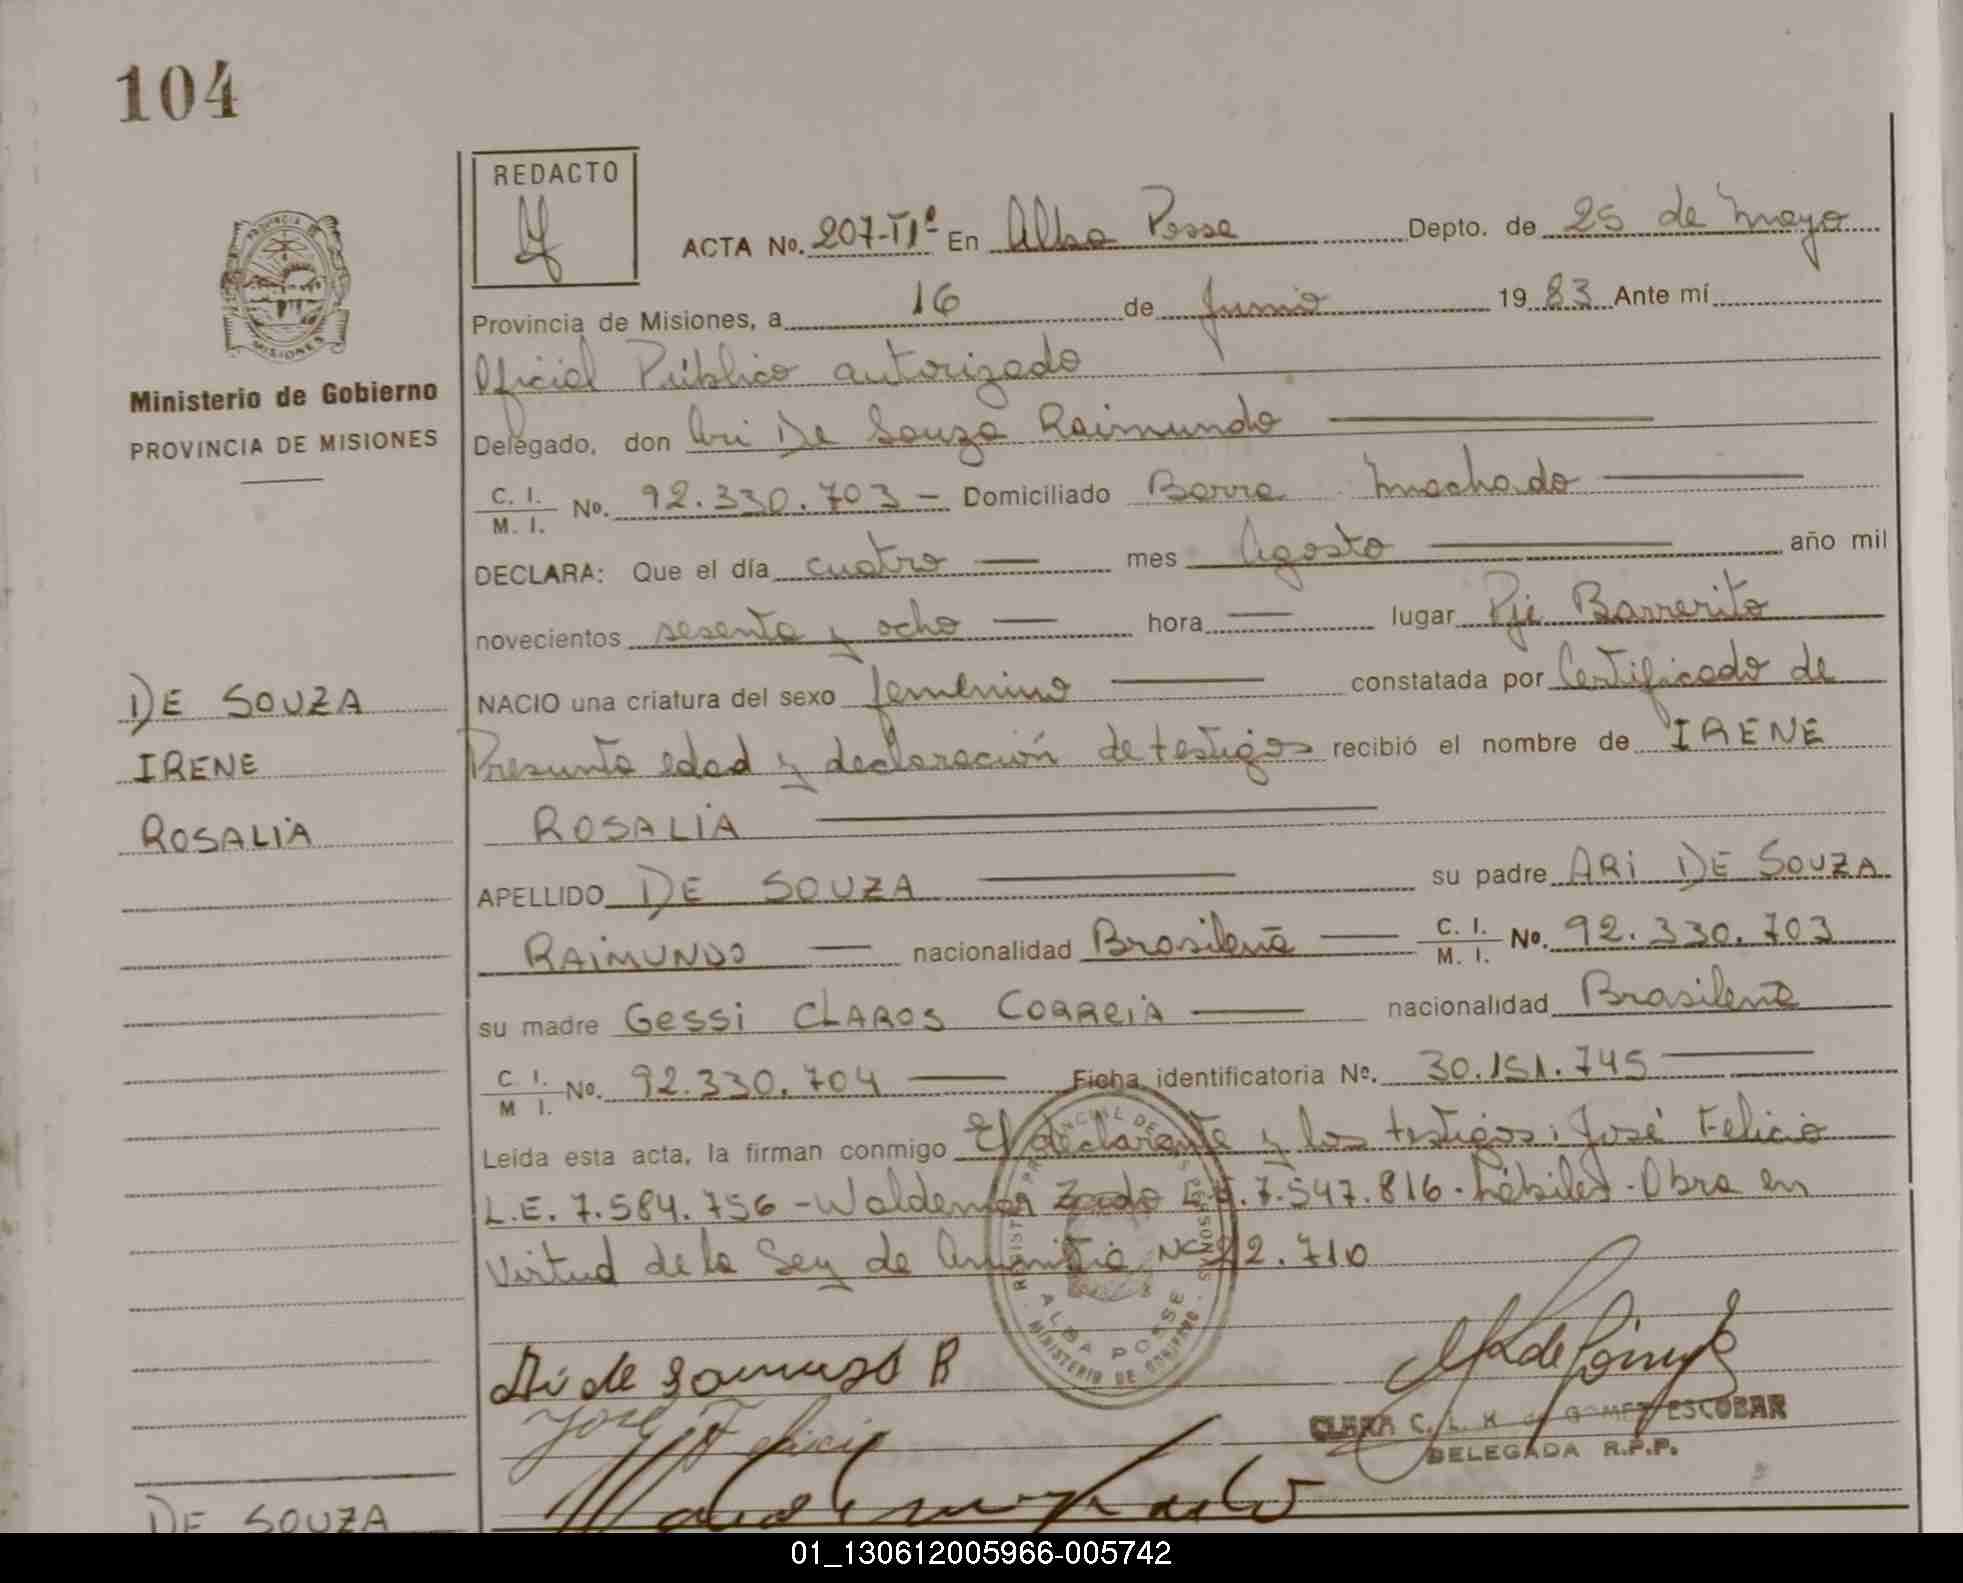 104
REDACTO
ACTA No. 207-TIº En Alba Posse Depto. de 25 de Mayo
Provincia de Misiones, a 16 de Junio 1983 Ante mí
Oficial Público autorizado
Ministerio de Gobierno
PROVINCIA DE MISIONES
Delegado, don Ari De Souza Raimundo
C. I. / M. I. No. 92.330.703 - Domiciliado Barra Machado
DECLARA: Que el día cuatro — mes Agosto — año mil
novecientos sesenta y ocho — hora — lugar Pje Barrerito
NACIO una criatura del sexo femenino — constatada por Certificado de
Presunta edad y declaración de testigos recibió el nombre de IRENE
ROSALIA
DE SOUZA
IRENE
ROSALIA
APELLIDO DE SOUZA — su padre ARI DE SOUZA
RAIMUNDO — nacionalidad Brasileña — C. I. / M. I. No. 92.330.703
su madre Gessi CLAROS CORREIA — nacionalidad Brasileña
C I. / M I. No. 92.330.704 — Ficha identificatoria No. 30.151.745
Leída esta acta, la firman conmigo El declarante y los testigos: José Felicio
L.E. 7.584.756 - Waldemar L.E. 7.547.816. hábiles. Obra en
Virtud de la Ley de Amnistía Nº 22.710
ALBA POSSE
MINISTERIO DE GOBIERNO
Ari de Souza R
José Felicio
CLARA C. L. K de GOMEZ ESCOBAR
DELEGADA R.P.P.
DE SOUZA
01_130612005966-005742